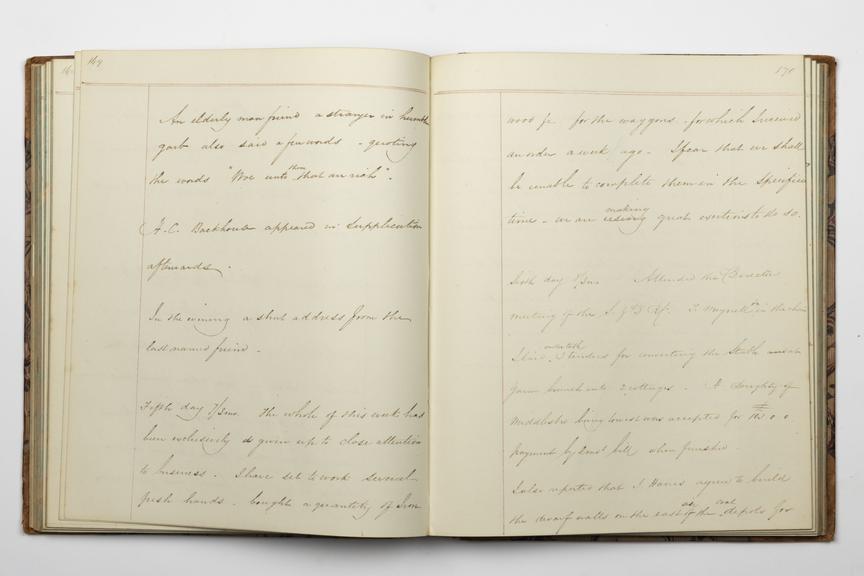 169
An elderly man friend a stranger in humble
garb also said a few words - quoting
the words "Woe unto them that are rich".
H. C. Backhouse appeared in Supplication
afterwards.
In the evening a short address from the
last named friend -
Fifth day 7/2mo. The whole of this week has
been exclusively given up to close attention
to business. I have set to work several
fresh hands. bought a quantity of Iron
170
wood &c for the waggons - for which I received
an order a week ago - I fear that we shall
be unable to complete them in the Specified
time - we are making great exertions to do so.
Sixth day 8/2mo Attended the Director
meeting of the S. & D Ry. T. Meynell in the chair
I laid 3 tenders for converting the Stable
into 2 cottages. A Doughty of
Middlesbro being lowest was accepted for
payment by 2mos bill when finished
I also reported that J Harris agrees to build
the dwarf walls on the east of the coal depots for